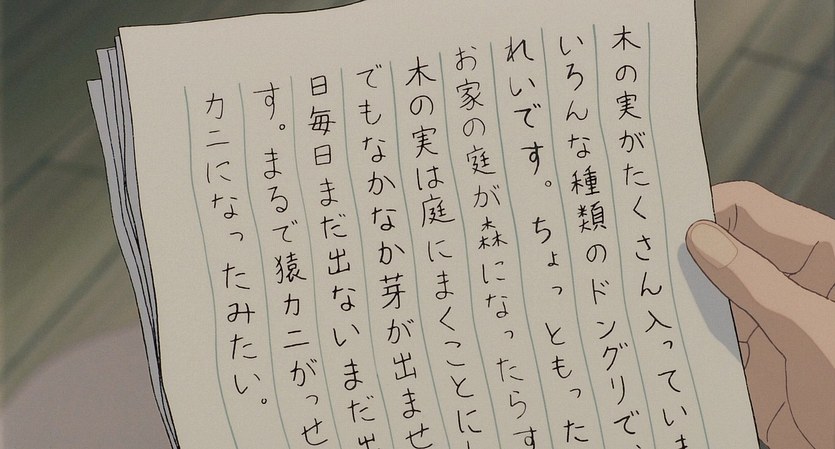 木の実がたくさん入っていま
いろんな種類のドングリで、
れいです。ちょっともった
お家の庭が森になったらす
木の実は庭にまくことに
でもなかなか芽が出ませ
日毎日まだ出ないまだ出
す。まるで猿カニがっせ
カニになったみたい。